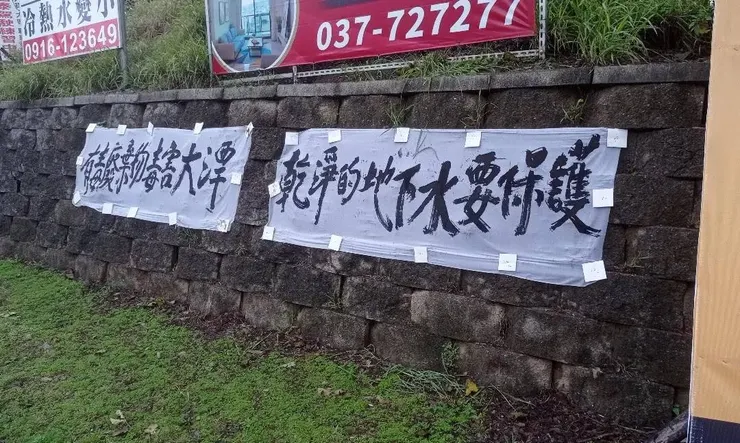 冷熱水變小
0916-123649
037-727277
有毒廢棄物毒害大潭
乾淨的地下水要保護